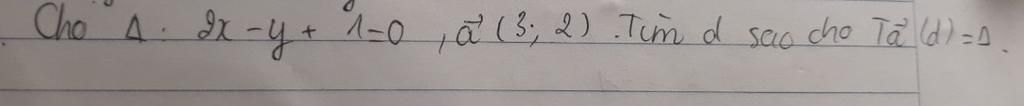 Cho Δ : 2x - y + 1 = 0 , a⃗ (3; 2) . Tìm d sao cho Ta⃗ (d) = Δ .